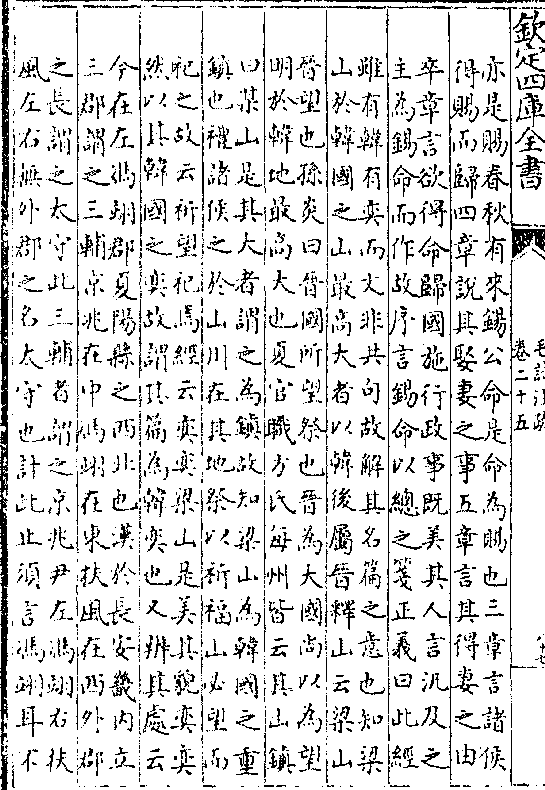 欽定四庫全書
毛詩注疏
卷二十五
十七
亦是賜春秋有來錫公命是命為賜也三章言諸侯
得賜而歸四章說其娶妻之事五章言其得妻之由
卒章言欲得命歸國施行政事既美其人言汎及之
主為錫命而作故序言錫命以總之箋正義曰此經
雖有韓有奕而文非共句故解其名篇之意也知梁
山於韓國之山最高大者以韓後屬晉釋山云梁山
晉望也孫炎曰晉國所望祭也晉為大國尚以為望
明於韓地最高大也夏官職方氏每州皆云其山鎮
曰某山是其大者謂之為鎮故知梁山為韓國之重
鎮也禮諸侯之於山川在其地祭以祈福山必望而
祀之故云祈望祀焉經云奕奕梁山是美其貌奕奕
然以其韓國之奕故謂其篇為韓奕也又辨其處云
今在左馮翊郡夏陽縣之西北也漢於長安畿內立
三郡謂之三輔京兆在中馮翊在東扶風在西外郡
之長謂之太守此三輔者謂之京兆尹左馮翊右扶
風左右無外郡之名太守也計此止須言馮翊耳不